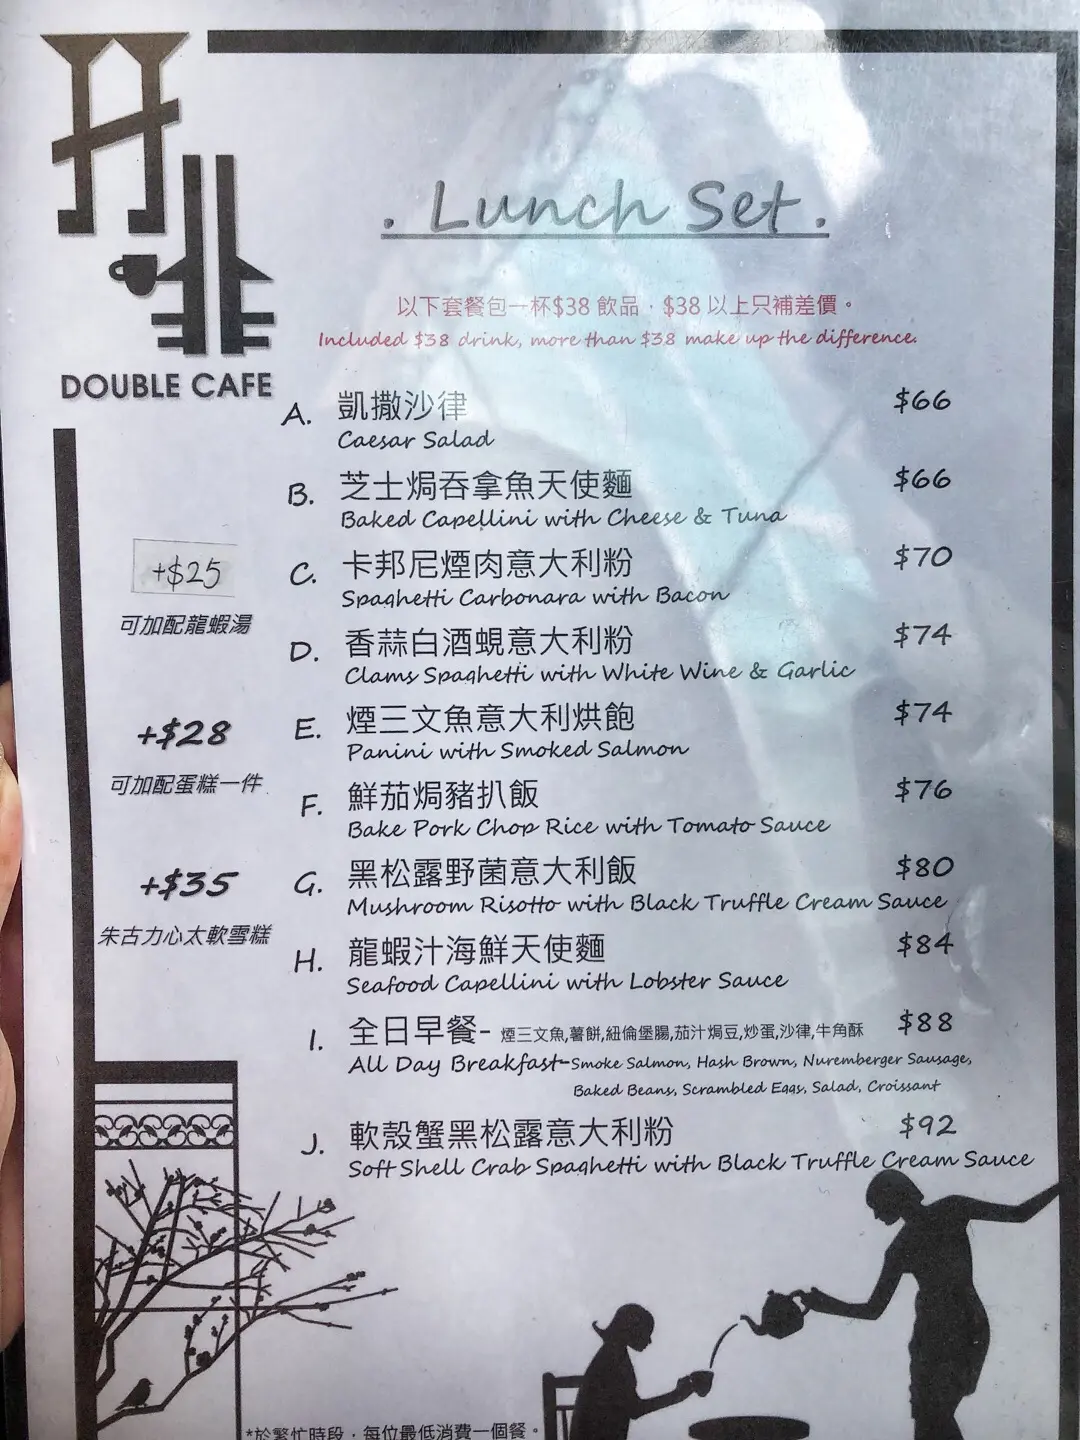 DOUBLE CAFE
. Lunch Set .
以下套餐包一杯$38 飲品，$38 以上只補差價。
Included $38 drink, more than $38 make up the difference.
A. 凱撒沙律 $66
Caesar Salad
B. 芝士焗吞拿魚天使麵 $66
Baked Capellini with Cheese & Tuna
C. 卡邦尼煙肉意大利粉 $70
Spaghetti Carbonara with Bacon
D. 香蒜白酒蜆意大利粉 $74
Clams Spaghetti with White Wine & Garlic
E. 煙三文魚意大利烘飽 $74
Panini with Smoked Salmon
F. 鮮茄焗豬扒飯 $76
Bake Pork Chop Rice with Tomato Sauce
G. 黑松露野菌意大利飯 $80
Mushroom Risotto with Black Truffle Cream Sauce
H. 龍蝦汁海鮮天使麵 $84
Seafood Capellini with Lobster Sauce
I. 全日早餐- 煙三文魚,薯餅,紐倫堡腸,茄汁焗豆,炒蛋,沙律,牛角酥 $88
All Day Breakfast-Smoke Salmon, Hash Brown, Nuremberger Sausage,
Baked Beans, Scrambled Eggs, Salad, Croissant
J. 軟殼蟹黑松露意大利粉 $92
Soft Shell Crab Spaghetti with Black Truffle Cream Sauce
+$25
可加配龍蝦湯
+$28
可加配蛋糕一件
+$35
朱古力心太軟雪糕
*於繁忙時段，每位最低消費一個餐。